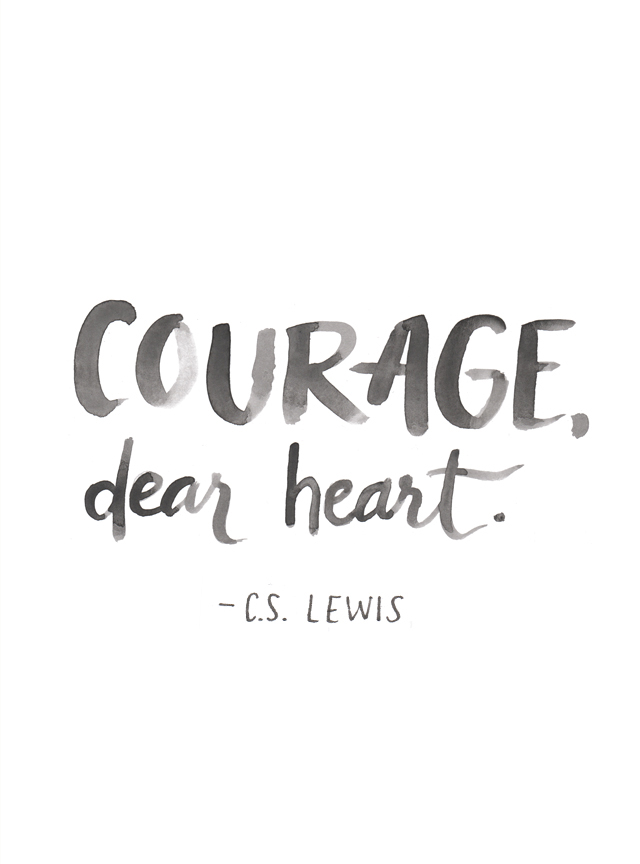 COURAGE,
dear heart.
-C.S. LEWIS